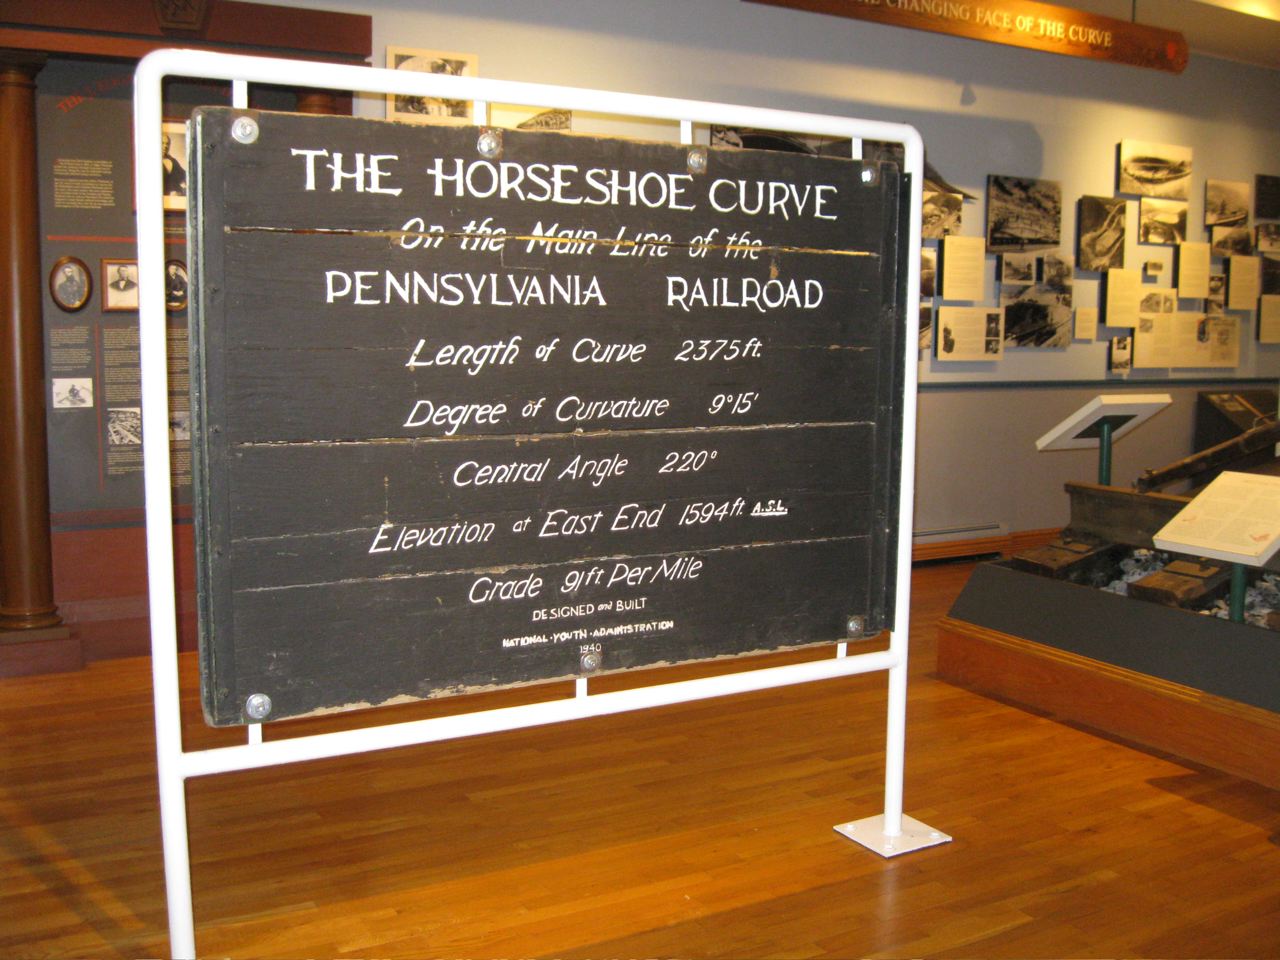 CHANGING FACE OF THE CURVE
THE HORSESHOE CURVE
On the Main Line of the
PENNSYLVANIA RAILROAD
Length of Curve 2375ft.
Degree of Curvature 9°15'
Central Angle 220°
Elevation at East End 1594ft. A.S.L.
Grade 91ft Per Mile
DESIGNED and BUILT
NATIONAL·YOUTH·ADMINISTRATION
1940